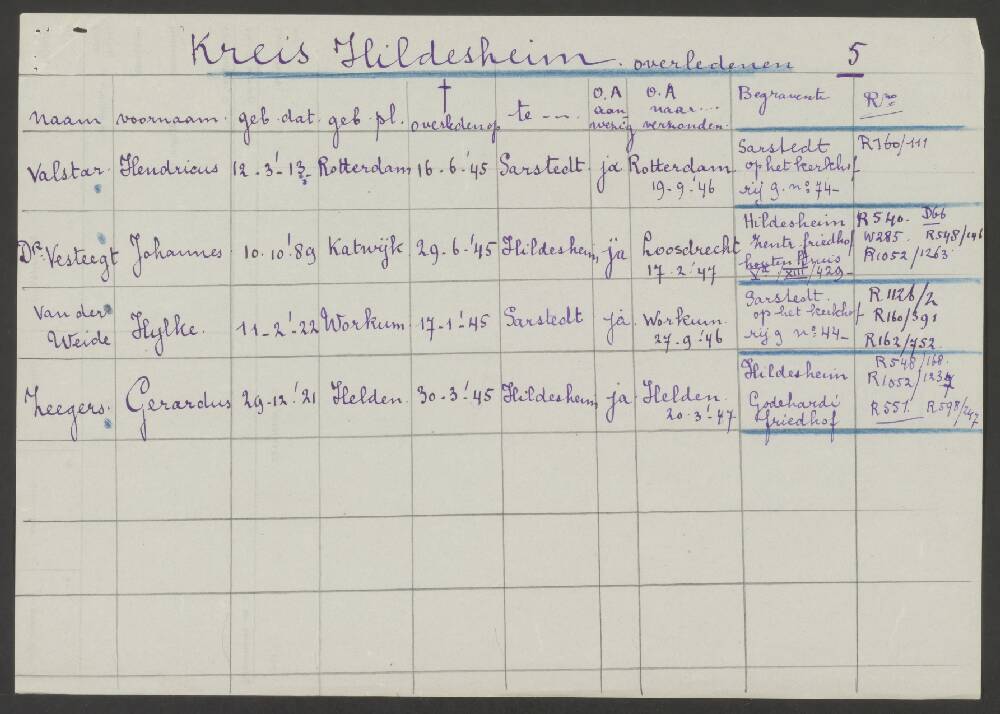 Kreis Hildesheim. overledenen 5
naam voornaam. geb. dat. geb. pl. † overleden op te --- O.A aan- wezig O.A naar... verzonden. Begravente R no
Valstar. Hendricus 12-3-'13. Rotterdam 16-6-'45 Sarstedt. ja Rotterdam 19-9-'46 Sarstedt op het kerkhof rij 9. no 74- R160/111
Dr. Vesteegt Johannes 10.10.'89 Katwijk 29-6-'45 Hildesheim, ja Loosdrecht 17.2.'47 Hildesheim Zentr. friedhof houten kruis XIII/429- R540. D66 W285. R548/246 R1052/1263
Van der Weide Hylke. 11-2-'22 Workum. 17-1-'45 Sarstedt ja. Workum. 27-9-'46 Sarstedt. op het kerkhof rij 9 no 44- R1126/2 R160/391 R162/752.
Zeegers. Gerardus 29-12-'21 Helden. 30-3-'45 Hildesheim, ja. Helden. 20.3-'47 Hildesheim Godehardi friedhof R548/168. R1052/1237 R551. R598/247